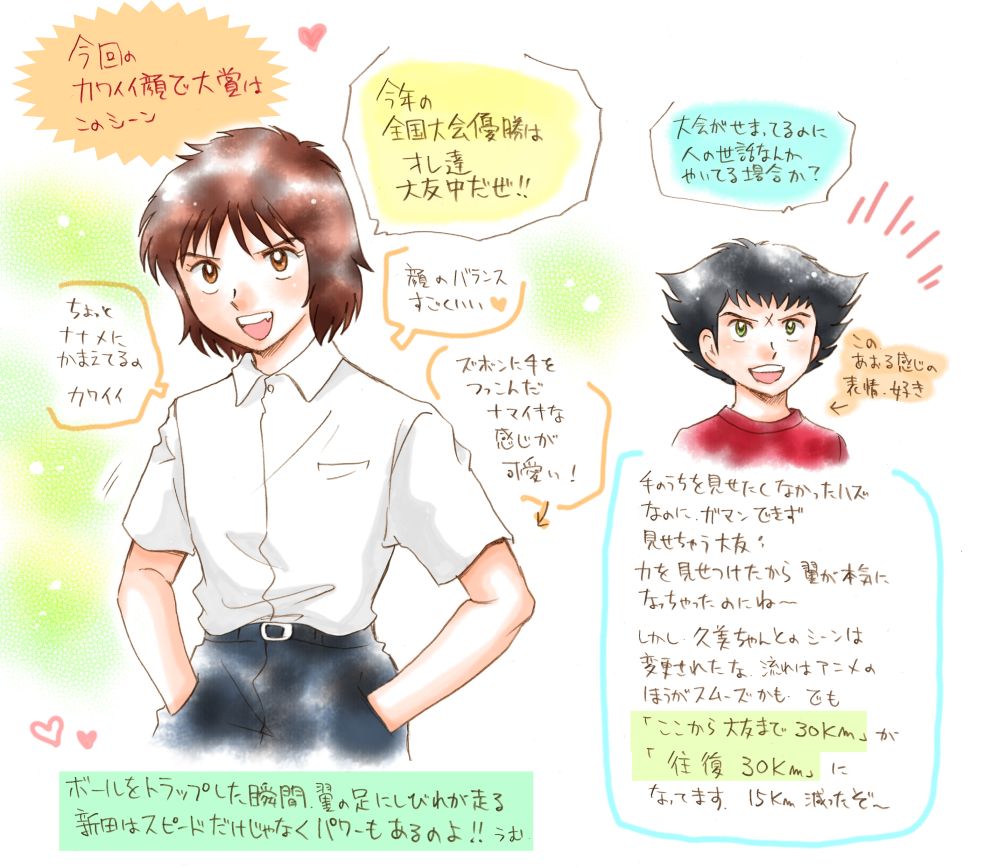 今回の
カワイイ顔で大賞は
このシーン
今年の
全国大会優勝は
オレ達
大友中だぜ!!
大会がせまってるのに
人の世話なんか
やいてる場合か?
顔のバランス
すごくいい♥
ちょっと
ナナメに
かまえてるの
カワイイ
ズボンに手を
つっこんだ
ナマイキな
感じが
可愛い!
この
あおる感じの
表情、好き
手のうちを見せたくなかったハズ
なのに、ガマンできず
見せちゃう大友。
力を見せつけたから翼が本気に
なっちゃったのにね〜
しかし、久美ちゃんとのシーンは
変更されたな、流れはアニメの
ほうがスムーズかも、でも
「ここから大友まで30Km」が
「往復30Km」に
なってます、15Km減ったぞ〜
ボールをトラップした瞬間、翼の足にしびれが走る
新田はスピードだけじゃなくパワーもあるのよ!!うむ、